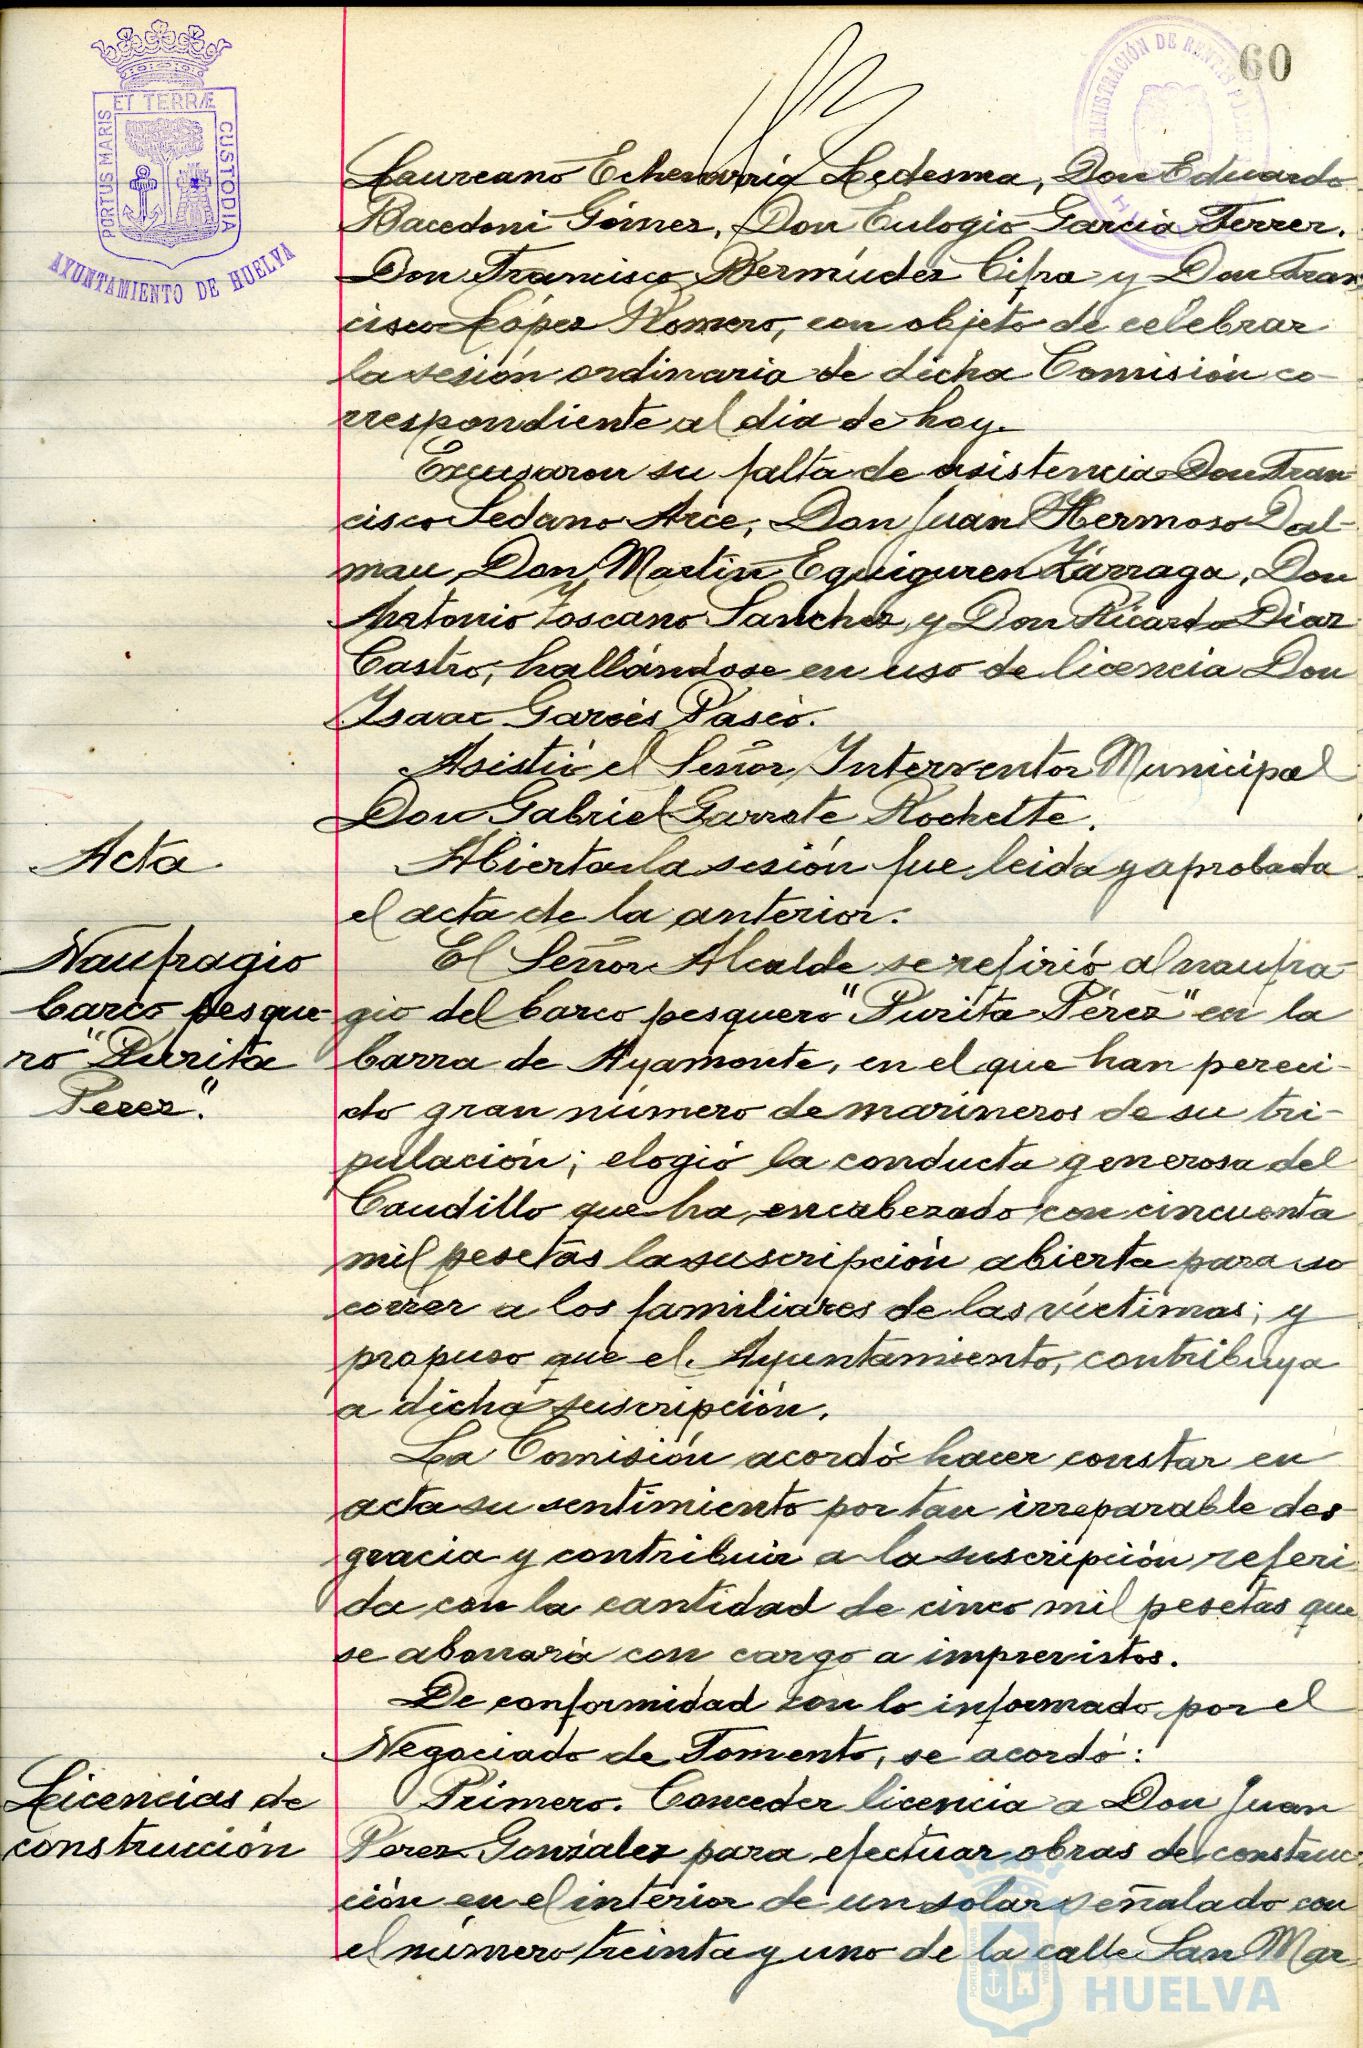 60
ET TERRÆ
PORTUS MARIS
CUSTODIA
AYUNTAMIENTO DE HUELVA
ADMINISTRACIÓN DE RENTAS PÚBLICAS
Laureano Echevarria Ledesma, Don Eduardo
Bacedoni Gómez, Don Eulogio Garcia Ferrer,
Don Francisco Bermúdez Cifra y Don Fran
cisco López Romero, con objeto de celebrar
la sesión ordinaria de dicha Comisión co-
rrespondiente al dia de hoy.
Excusaron su falta de asistencia Don Fran
cisco Sedano Arce, Don Juan Hermoso Dal-
mau, Don Martin Eguiguren Zárraga, Don
Antonio Toscano Sanchez, y Don Ricardo Diaz
Castro, hallándose en uso de licencia Don
Isaac Garcés Paseo.
Asistió el Señor Interventor Municipal
Don Gabriel Garrote Rochette.
Acta
Abierta la sesión fue leida y aprobada
el acta de la anterior.
Naufragio
barco pesque
ro "Purita
Perez".
El Señor Alcalde se refirió al naufra
gio del barco pesquero "Purita Pérez" en la
barra de Ayamonte, en el que han pereci-
do gran número de marineros de su tri-
pulación; elogió la conducta generosa del
Caudillo que ha encabezado con cincuenta
mil pesetas la suscripción abierta para so
correr a los familiares de las victimas; y
propuso que el Ayuntamiento, contribuya
a dicha suscripción.
La Comisión acordó hacer constar en
acta su sentimiento por tan irreparable des
gracia y contribuir a la suscripción referi
da con la cantidad de cinco mil pesetas que
se abonará con cargo a imprevistos.
De conformidad con lo informado por el
Negociado de Fomento, se acordó:
Licencias de
construcción
Primero. Conceder licencia a Don Juan
Perez González para efectuar obras de construc
ción en el interior de un solar señalado con
el número treinta y uno de la calle San Mar
HUELVA